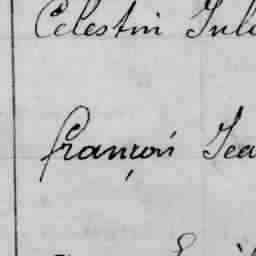 Celestin Jul
François Jea